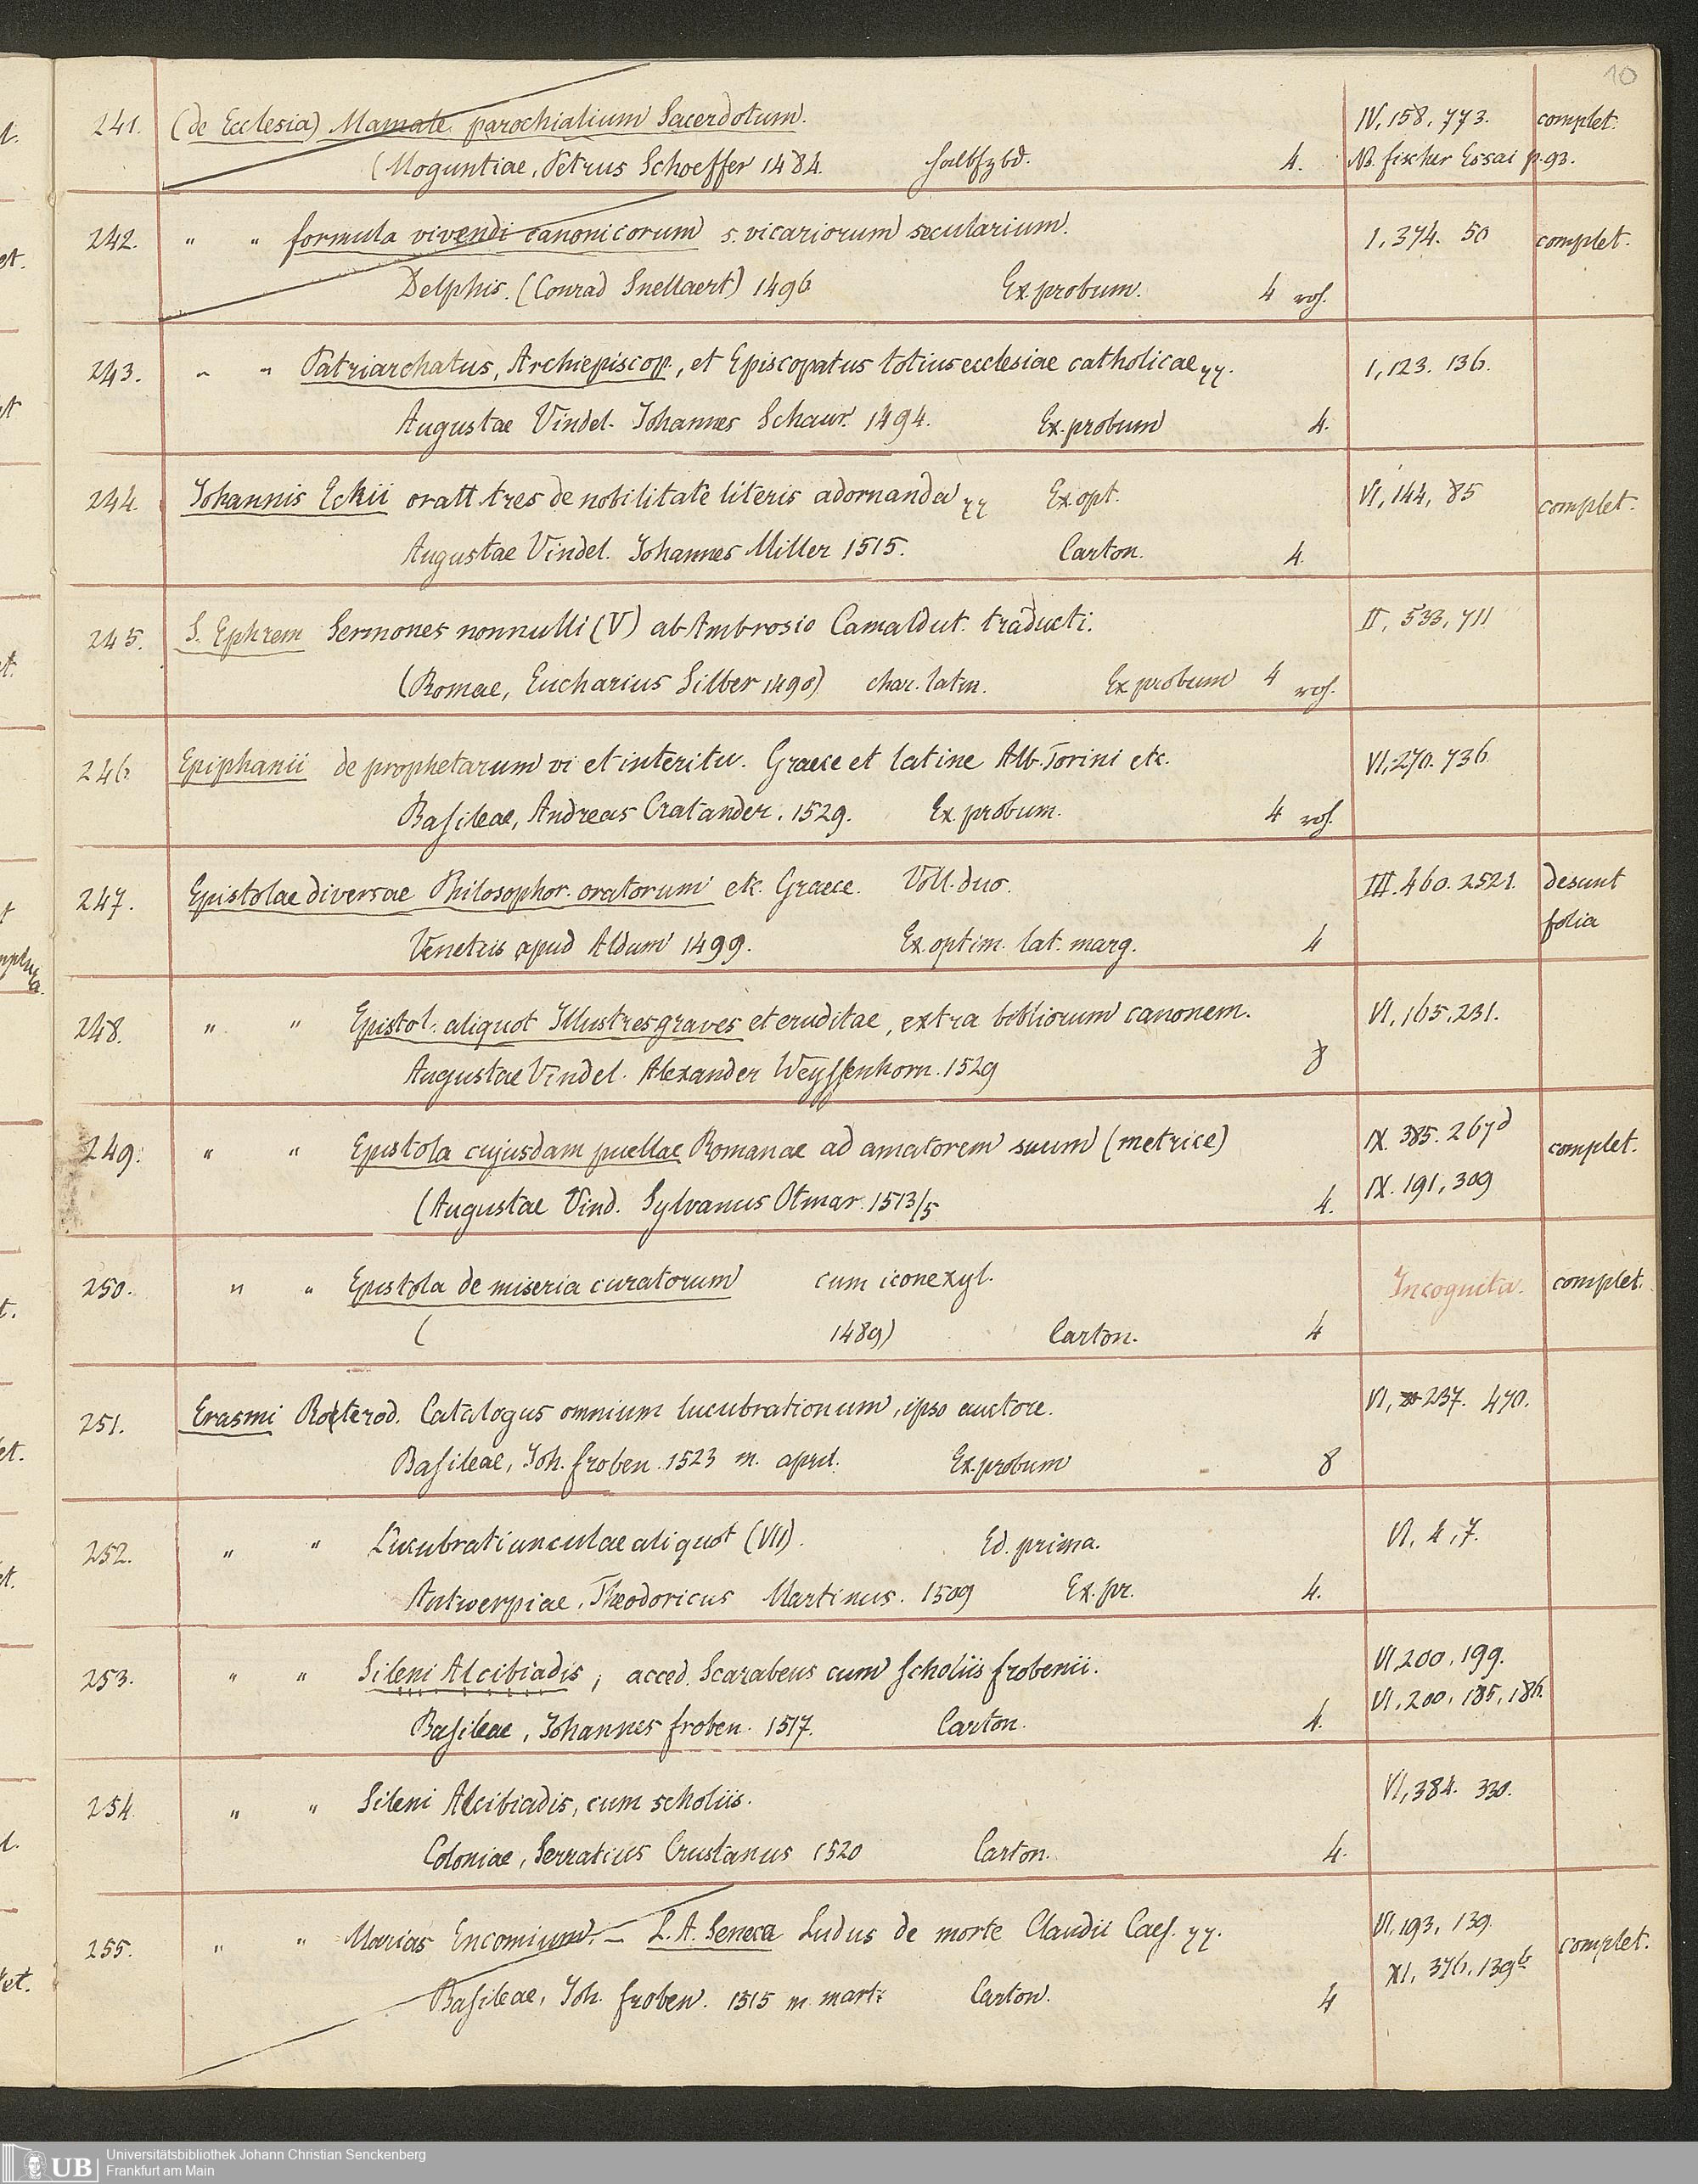 10
241. (de Ecclesia) Mamate parochialium Sacerdotum. IV, 158, 773. complet.
(Moguntiae, Petrus Schoeffer 1484. Halbfzbd. 4. NB. fischer Essai p. 93.
242. " " formula vivendi canonicorum s. vicariorum secularium. I, 374. 50 complet.
Delphis. (Conrad Snellaert) 1496 Ex. probum. 4 roh.
243. " " Patriarchatus, Archiepiscop., et Episcopatus totius ecclesiae catholicae I, 123. 136.
Augustae Vindel. Johannes Schaur. 1494. Ex. probum 4.
244. Johannis Eckii oratt. tres de nobilitate literis adornanda Ex. opt. VI, 144, 85 complet.
Augustae Vindel. Johannes Miller 1515. Carton. 4.
245. S. Ephrem Sermones nonnulli (V) ab Ambrosio Camaldut. traducti. II, 533, 711
(Romae, Eucharius Silber 1490) char. latin. Ex probum 4 roh.
246 Epiphanii de prophetarum vi et interitu. Graece et latine Alb. Torini etc. VI, 270. 736
Basileae, Andreas Cratander. 1529. Ex. probum. 4 roh.
247. Epistolae diversae Philosophor. oratorum etc. Graece. Voll. duo. III. 460. 2521. desunt
folia
Venetiis apud Aldum 1499. Ex. optim. lat. marg. 4
248. " " Epistol. aliquot Illustres graves et eruditae, extra bibliorum canonem. VI, 165. 231.
Augustae Vindel. Alexander Weyssenhorn. 1529 8
249. " " Epistola cujusdam puellae Romanae ad amatorem suum (metrice) IX. 385. 267d complet.
(Augustae Vind. Sylvanus Otmar. 1513/5 4. IX. 191, 309
250. " " Epistola de miseria curatorum cum icone xyl. Incognita. complet.
( 1489) Carton. 4
251. Erasmi Roterod. Catalogus omnium lucubrationum, ipso auctore. VI, 237. 470.
Basileae, Joh. froben. 1523 m. april. Ex. probum 8
252. " " Lucubratiunculae aliquot (VII). Ed. prima. VI, 4, 7.
Antwerpiae, Theodoricus Martinus. 1509 Ex. pr. 4.
253. " " Sileni Alcibiadis, acced. Scarabeus cum scholiis frobenii. VI, 200, 199.
Basileae, Johannes froben. 1517. Carton. 4. VI, 200, 185, 186.
254. " " Sileni Alcibiadis, cum scholiis. VI, 384. 330.
Coloniae, Serratius Crustanus 1520 Carton. 4.
255. " " Marias Encomium. — L. A. Seneca Ludus de morte Claudii Caes. VI, 193, 139. complet.
Basileae, Joh. froben. 1515 m. marti Carton. 4 XI, 376, 139b
UB Universitätsbibliothek Johann Christian Senckenberg
Frankfurt am Main